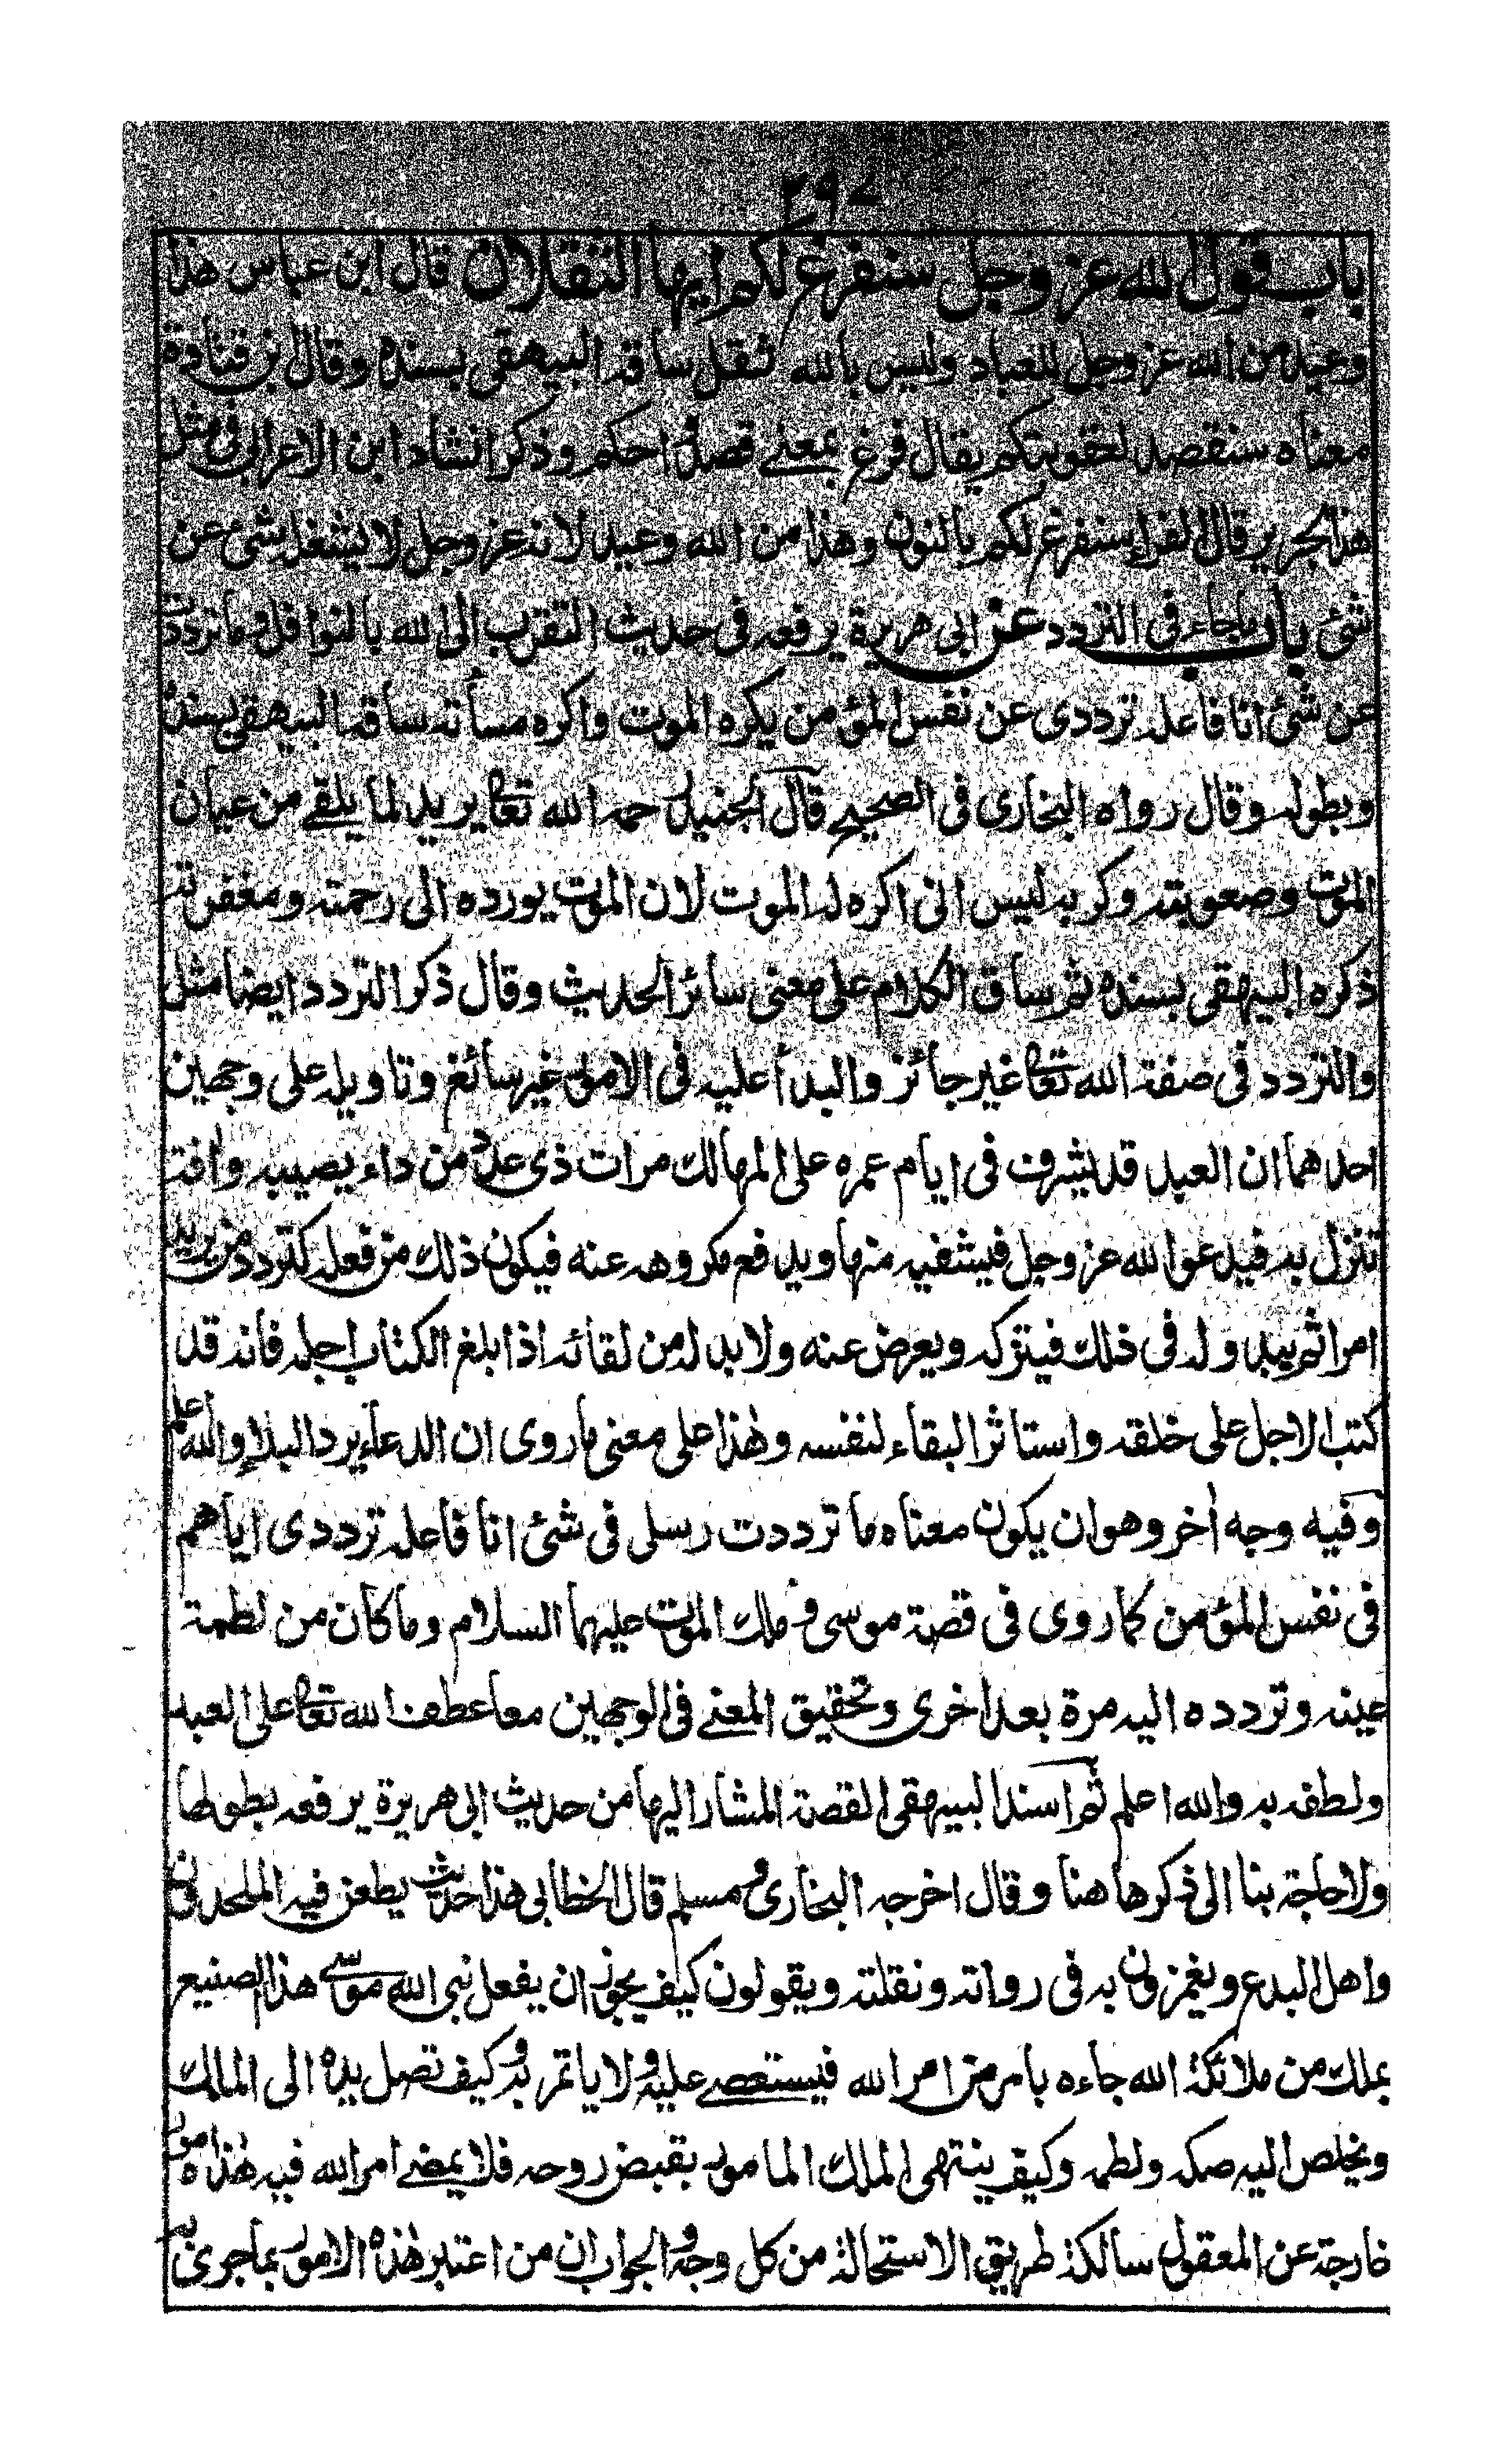 ٢٩٧
باب قول الله عز وجل سنفرغ لكم ايها الثقلان قال ابن عباس هذا
وعيد من الله عز وجل للعباد وليس بالله ثقل ساقه البيهقي بسنده وقال ابن قتادة
معناه سنقصد لعقوبتكم يقال فرغ بمعنى قصد واحكم وذكر انشاد ابن الاعرابي في مثل
هذا لجرير قال الفراء سنفرغ لكم بالنون وهذا من الله وعيد لانه عز وجل لا يشغل شئ عن
شئ باب ما جاء في التردد عن ابي هريرة يرفعه في حديث التقرب الى الله بالنوافل وما ترددت
عن شئ انا فاعله ترددي عن نفس المؤمن يكره الموت واكره مسأته ساقه البيهقي بسنده
وبطوله وقال رواه البخاري في الصحيح قال الجنيد رحمه الله تعالى يريد لما يلقى من عيان
الموت وصعوبته وكربه ليس اني اكره له الموت لان الموت يورده الى رحمته ومغفرته
ذكره البيهقي بسنده ثم ساق الكلام على معنى سائر الحديث وقال ذكر التردد ايضا مثل
والتردد في صفة الله تعالى غير جائز والبدأ عليه في الامور غير سائغ وتاويله على وجهين
احدهما ان العبد قد يشرف في ايام عمره على المهالك مرات ذي عدد من داء يصيبه وافة
تنزل به فيدعو الله عز وجل فيشفيه منها ويدفع مكروهه عنه فيكون ذلك من فعله كتردد من يريد
امرا ثم يبدو له في ذلك فيتركه ويعرض عنه ولا بد له من لقائه اذا بلغ الكتاب اجله فانه قد
كتب الاجل على خلقه واستاثر البقاء لنفسه وهذا على معنى ما روى ان الدعاء يرد البلاء والله اعلم
وفيه وجه أخر وهو ان يكون معناه ما ترددت رسلي في شئ انا فاعله ترددي اياهم
في نفس المؤمن كما روى في قصة موسى وملك الموت عليهما السلام وما كان من لطمة
عينه وتردده اليه مرة بعد اخرى وتحقيق المعنى في الوجهين معا عطف الله تعالى على العبد
ولطفه به والله اعلم ثم اسند البيهقي القصة المشار اليها من حديث ابي هريرة يرفعه بطولها
ولا حاجة بنا الى ذكرها هنا وقال اخرجه البخاري ومسلم قال الخطابي هذا حديث يطعن فيه الملحدون
واهل البدع ويغمزون به في رواته ونقلته ويقولون كيف يجوز ان يفعل نبي الله موسى هذا الصنيع
بملك من ملائكة الله جاءه بامر من امر الله فيستعصى عليه ولا ياتمر به وكيف تصل يده الى المالك
ويخلص اليه صكه ولطمه وكيف ينتهى الملك المامور بقبض روحه فلا يمضى امر الله فيه هذه امور
خارجة عن المعقول سالكة طريق الاستحالة من كل وجه والجواب ان من اعتبر هذه الامور بما جرى به